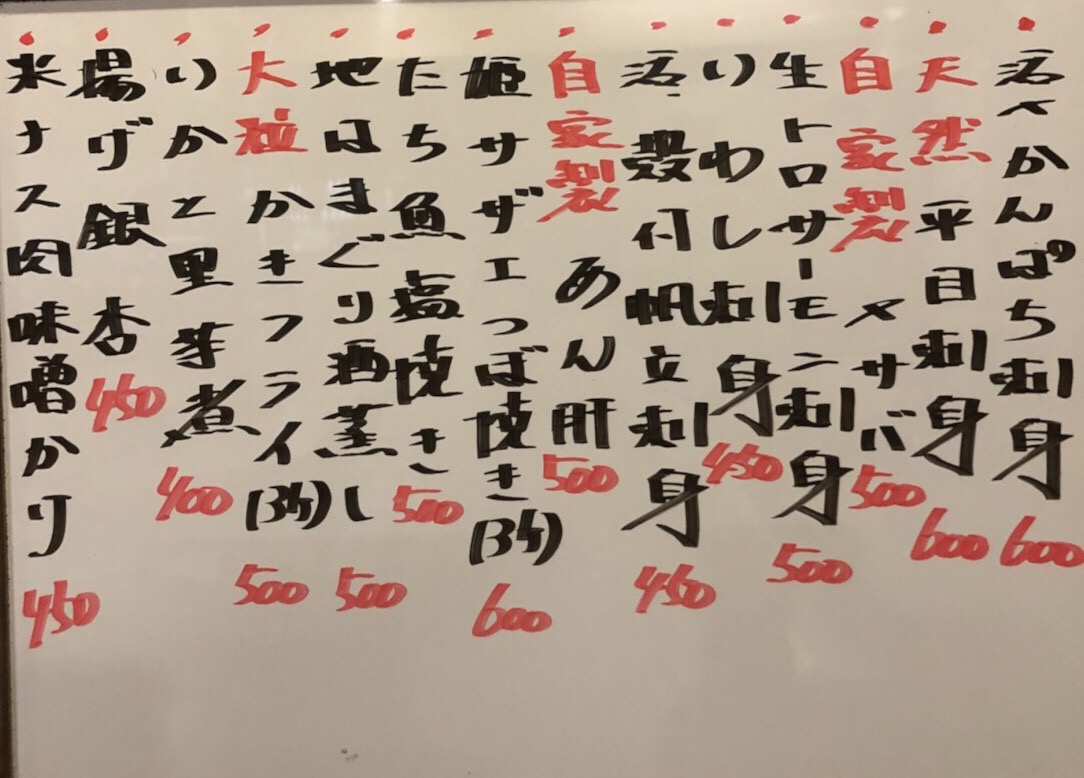 ・活〆かんぱち刺身 600
・天然平目刺身 600
・自家製〆サバ 500
・生トロサーモン刺身 500
・いわし刺身 450
・活殻付帆立刺身 450
・自家製あん肝 500
・姫サザエつぼ焼き(3ケ) 600
・たち魚塩焼き 500
・地はまぐり酒蒸し 500
・大粒かきフライ(3ケ) 500
・いかと里芋煮 400
・揚げ銀杏 450
・米ナス肉味噌かけ 450